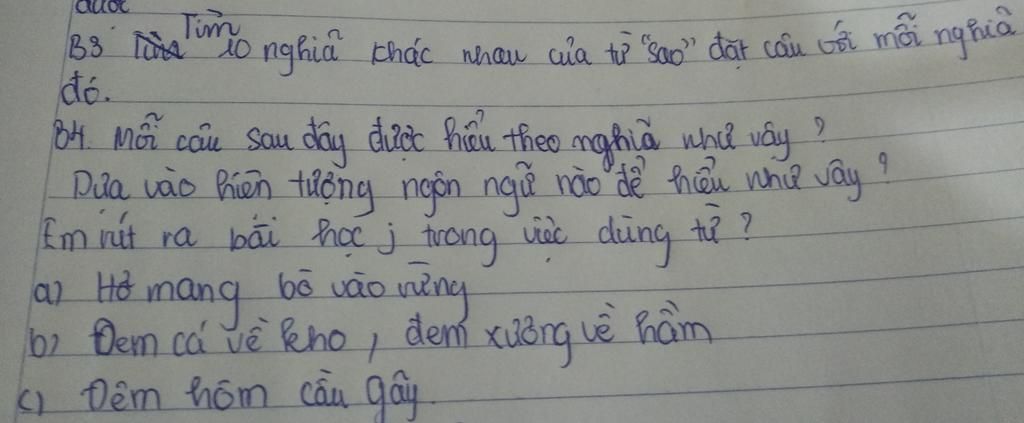 được
B3 Tìm 10 nghiã khác nhau của từ "sao" đặt câu với mỗi nghiã
đó.
B4. Mỗi câu sau đây được hiểu theo nghiã như vây ?
Dựa vào hiện tượng ngôn ngữ nào để hiểu như vây ?
Em rút ra bài học j trong việc dùng từ ?
a) Hổ mang bò vào rừng
b) Đem cá về kho, đem xương về hầm
c) Đêm hôm cầu gãy.